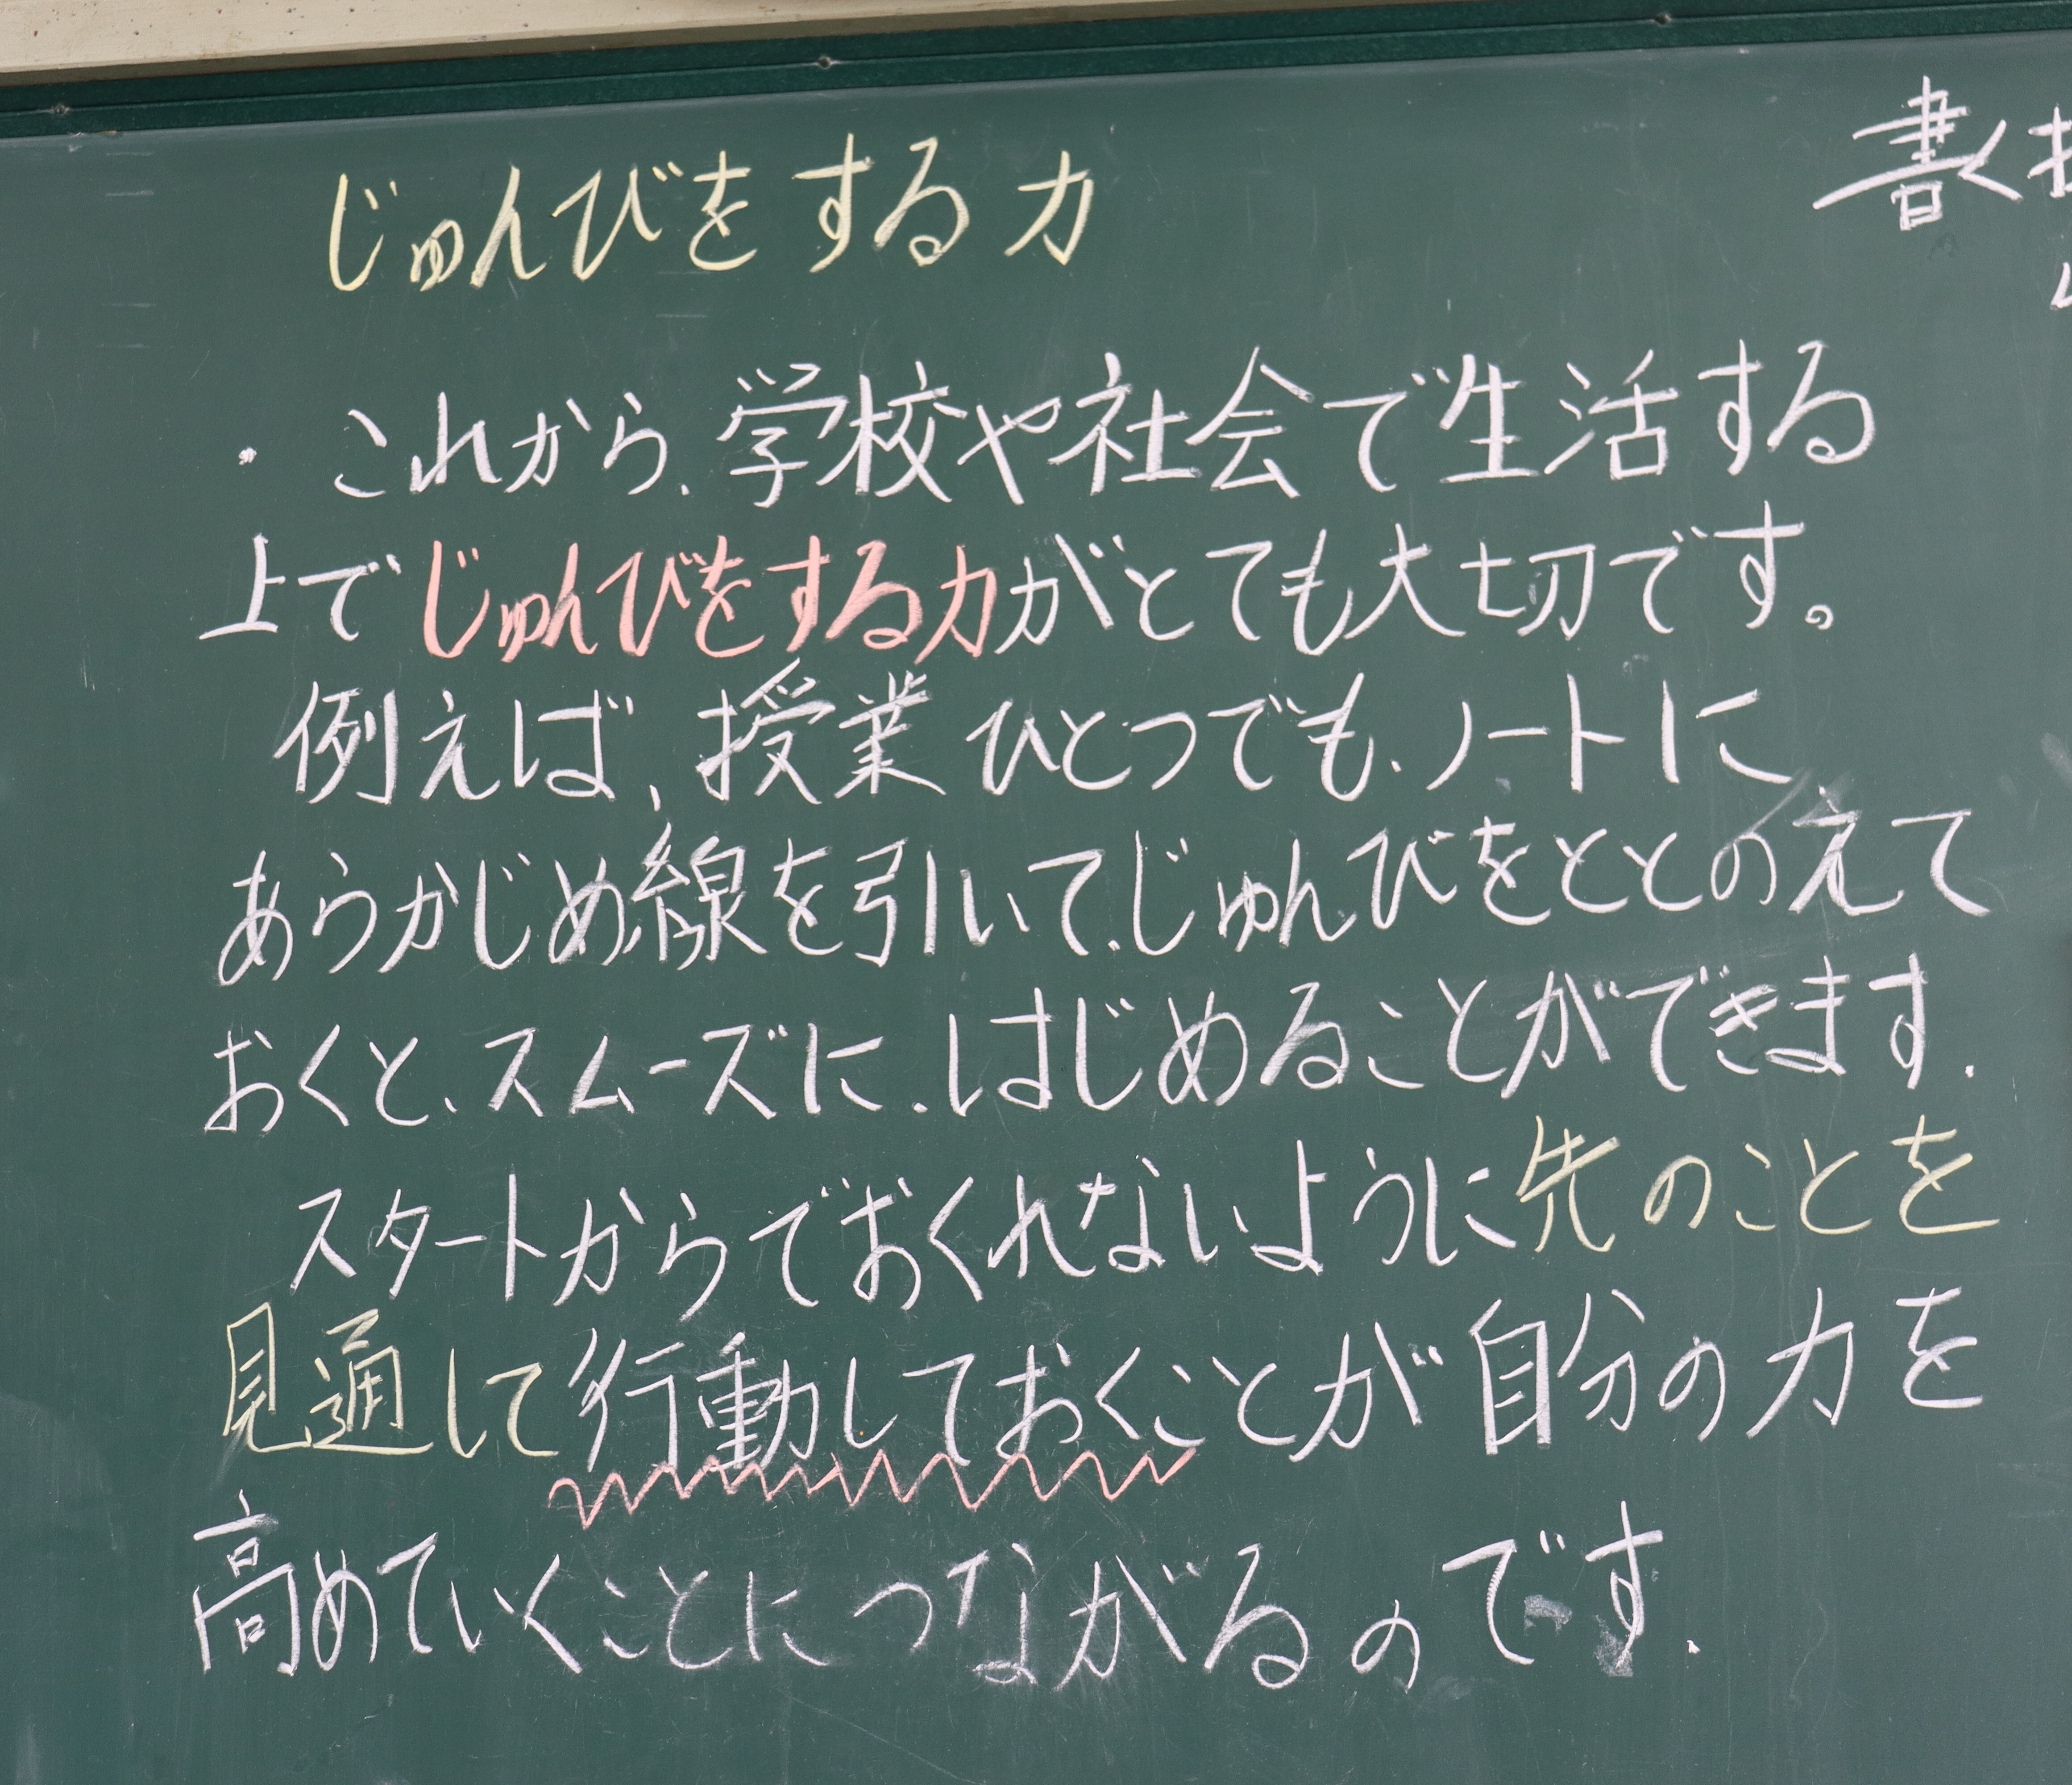 じゅんびをする力
・これから、学校や社会で生活する
上でじゅんびをする力がとても大切です。
例えば、授業ひとつでも、ノートに
あらかじめ線を引いて、じゅんびをととのえて
おくと、スムーズに、はじめることができます.
スタートからでおくれないように先のことを
見通して行動しておくことが自分の力を
高めていくことにつながるのです.
書く